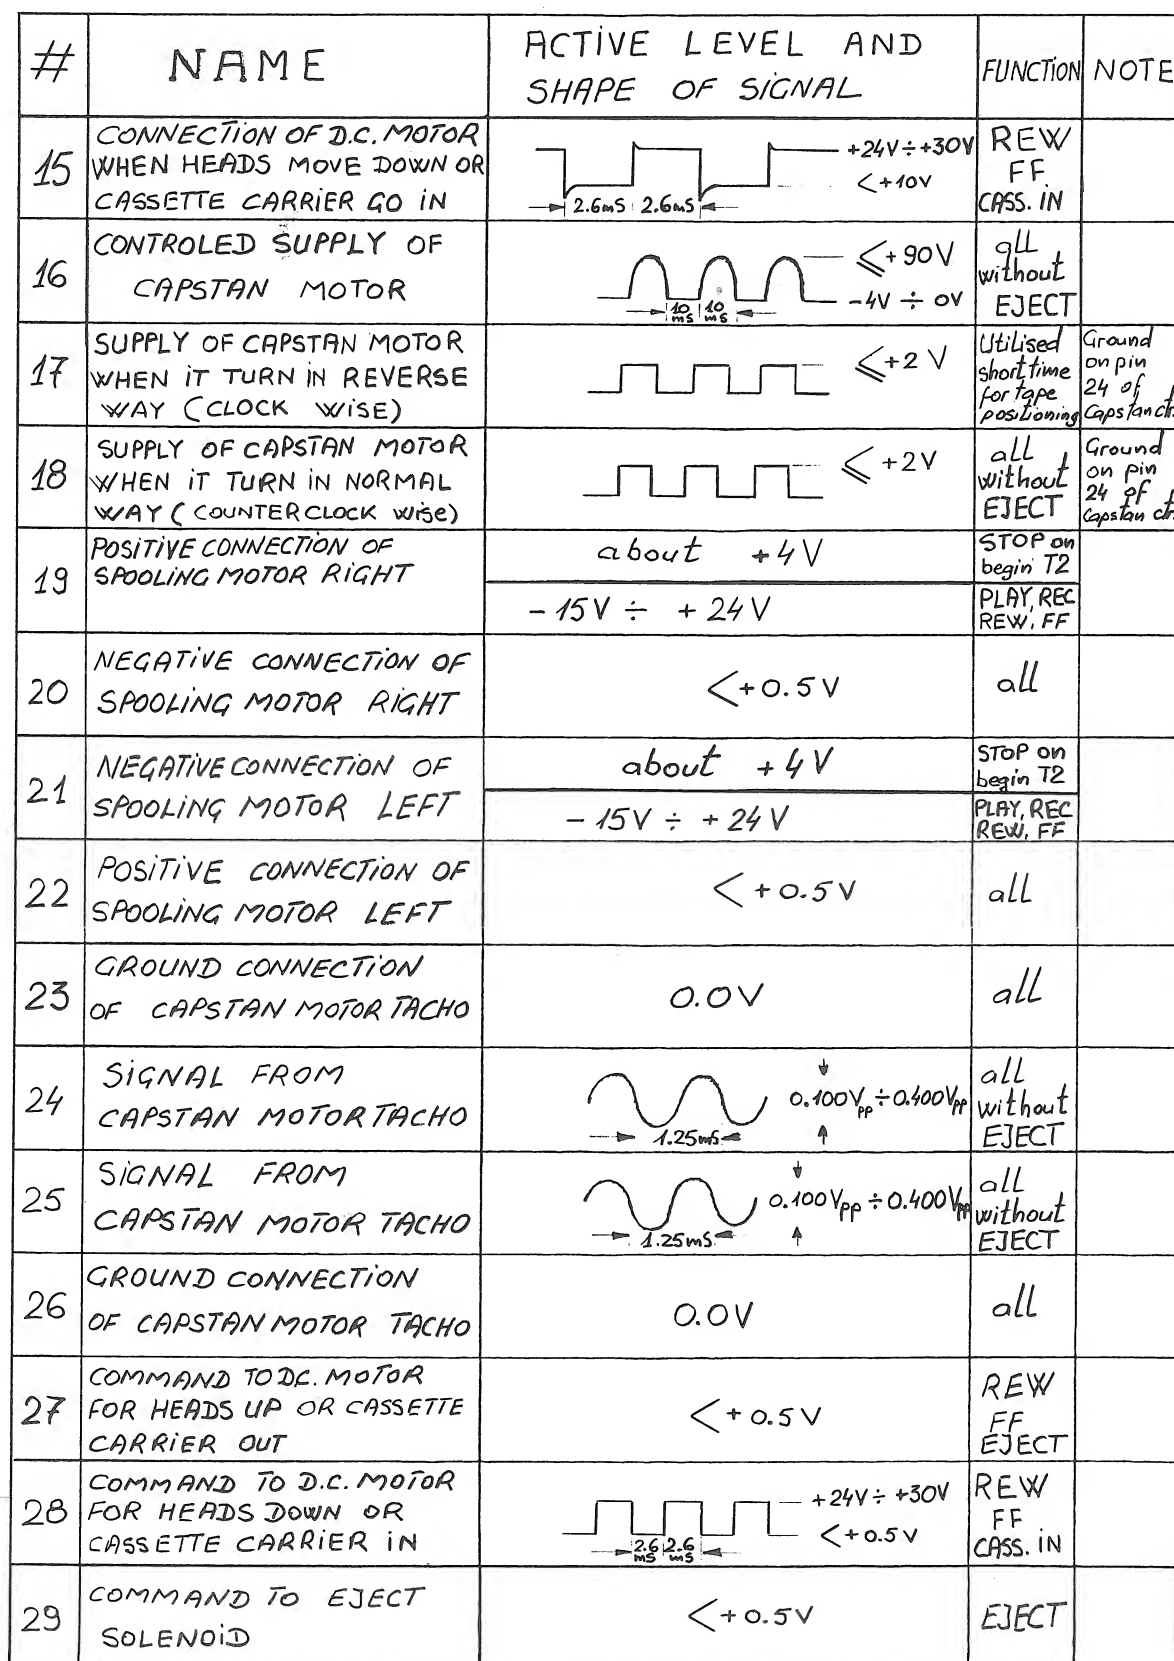 # NAME ACTIVE LEVEL AND SHAPE OF SIGNAL FUNCTION NOTE
15
CONNECTION OF D.C. MOTOR
WHEN HEADS MOVE DOWN OR
CASSETTE CARRIER GO IN
+24V ÷ +30V
<+10V
2.6mS 2.6mS
REW
FF
CASS. IN
16
CONTROLED SUPPLY OF
CAPSTAN MOTOR
⩽+90V
-4V ÷ 0V
10 mS 10 mS
all
without
EJECT
17
SUPPLY OF CAPSTAN MOTOR
WHEN IT TURN IN REVERSE
WAY (CLOCK WISE)
⩽+2 V
Utilised
short time
for tape
positioning
Ground
on pin
24 of
Capstan
18
SUPPLY OF CAPSTAN MOTOR
WHEN IT TURN IN NORMAL
WAY (COUNTERCLOCK WISE)
⩽+2V
all
without
EJECT
Ground
on pin
24 of
Capstan
19
POSITIVE CONNECTION OF
SPOOLING MOTOR RIGHT
about +4V
STOP on
begin T2
-15V ÷ +24V
PLAY, REC
REW, FF
20
NEGATIVE CONNECTION OF
SPOOLING MOTOR RIGHT
<+0.5V
all
21
NEGATIVE CONNECTION OF
SPOOLING MOTOR LEFT
about +4V
STOP on
begin T2
-15V ÷ +24V
PLAY, REC
REW, FF
22
POSITIVE CONNECTION OF
SPOOLING MOTOR LEFT
<+0.5V
all
23
GROUND CONNECTION
OF CAPSTAN MOTOR TACHO
0.0V
all
24
SIGNAL FROM
CAPSTAN MOTOR TACHO
0.100Vpp÷0.400Vpp
1.25mS
all
without
EJECT
25
SIGNAL FROM
CAPSTAN MOTOR TACHO
0.100Vpp÷0.400Vpp
1.25mS
all
without
EJECT
26
GROUND CONNECTION
OF CAPSTAN MOTOR TACHO
0.0V
all
27
COMMAND TO DC. MOTOR
FOR HEADS UP OR CASSETTE
CARRIER OUT
<+0.5V
REW
FF
EJECT
28
COMMAND TO D.C. MOTOR
FOR HEADS DOWN OR
CASSETTE CARRIER IN
+24V ÷ +30V
<+0.5V
2.6 mS 2.6 mS
REW
FF
CASS. IN
29
COMMAND TO EJECT
SOLENOID
<+0.5V
EJECT